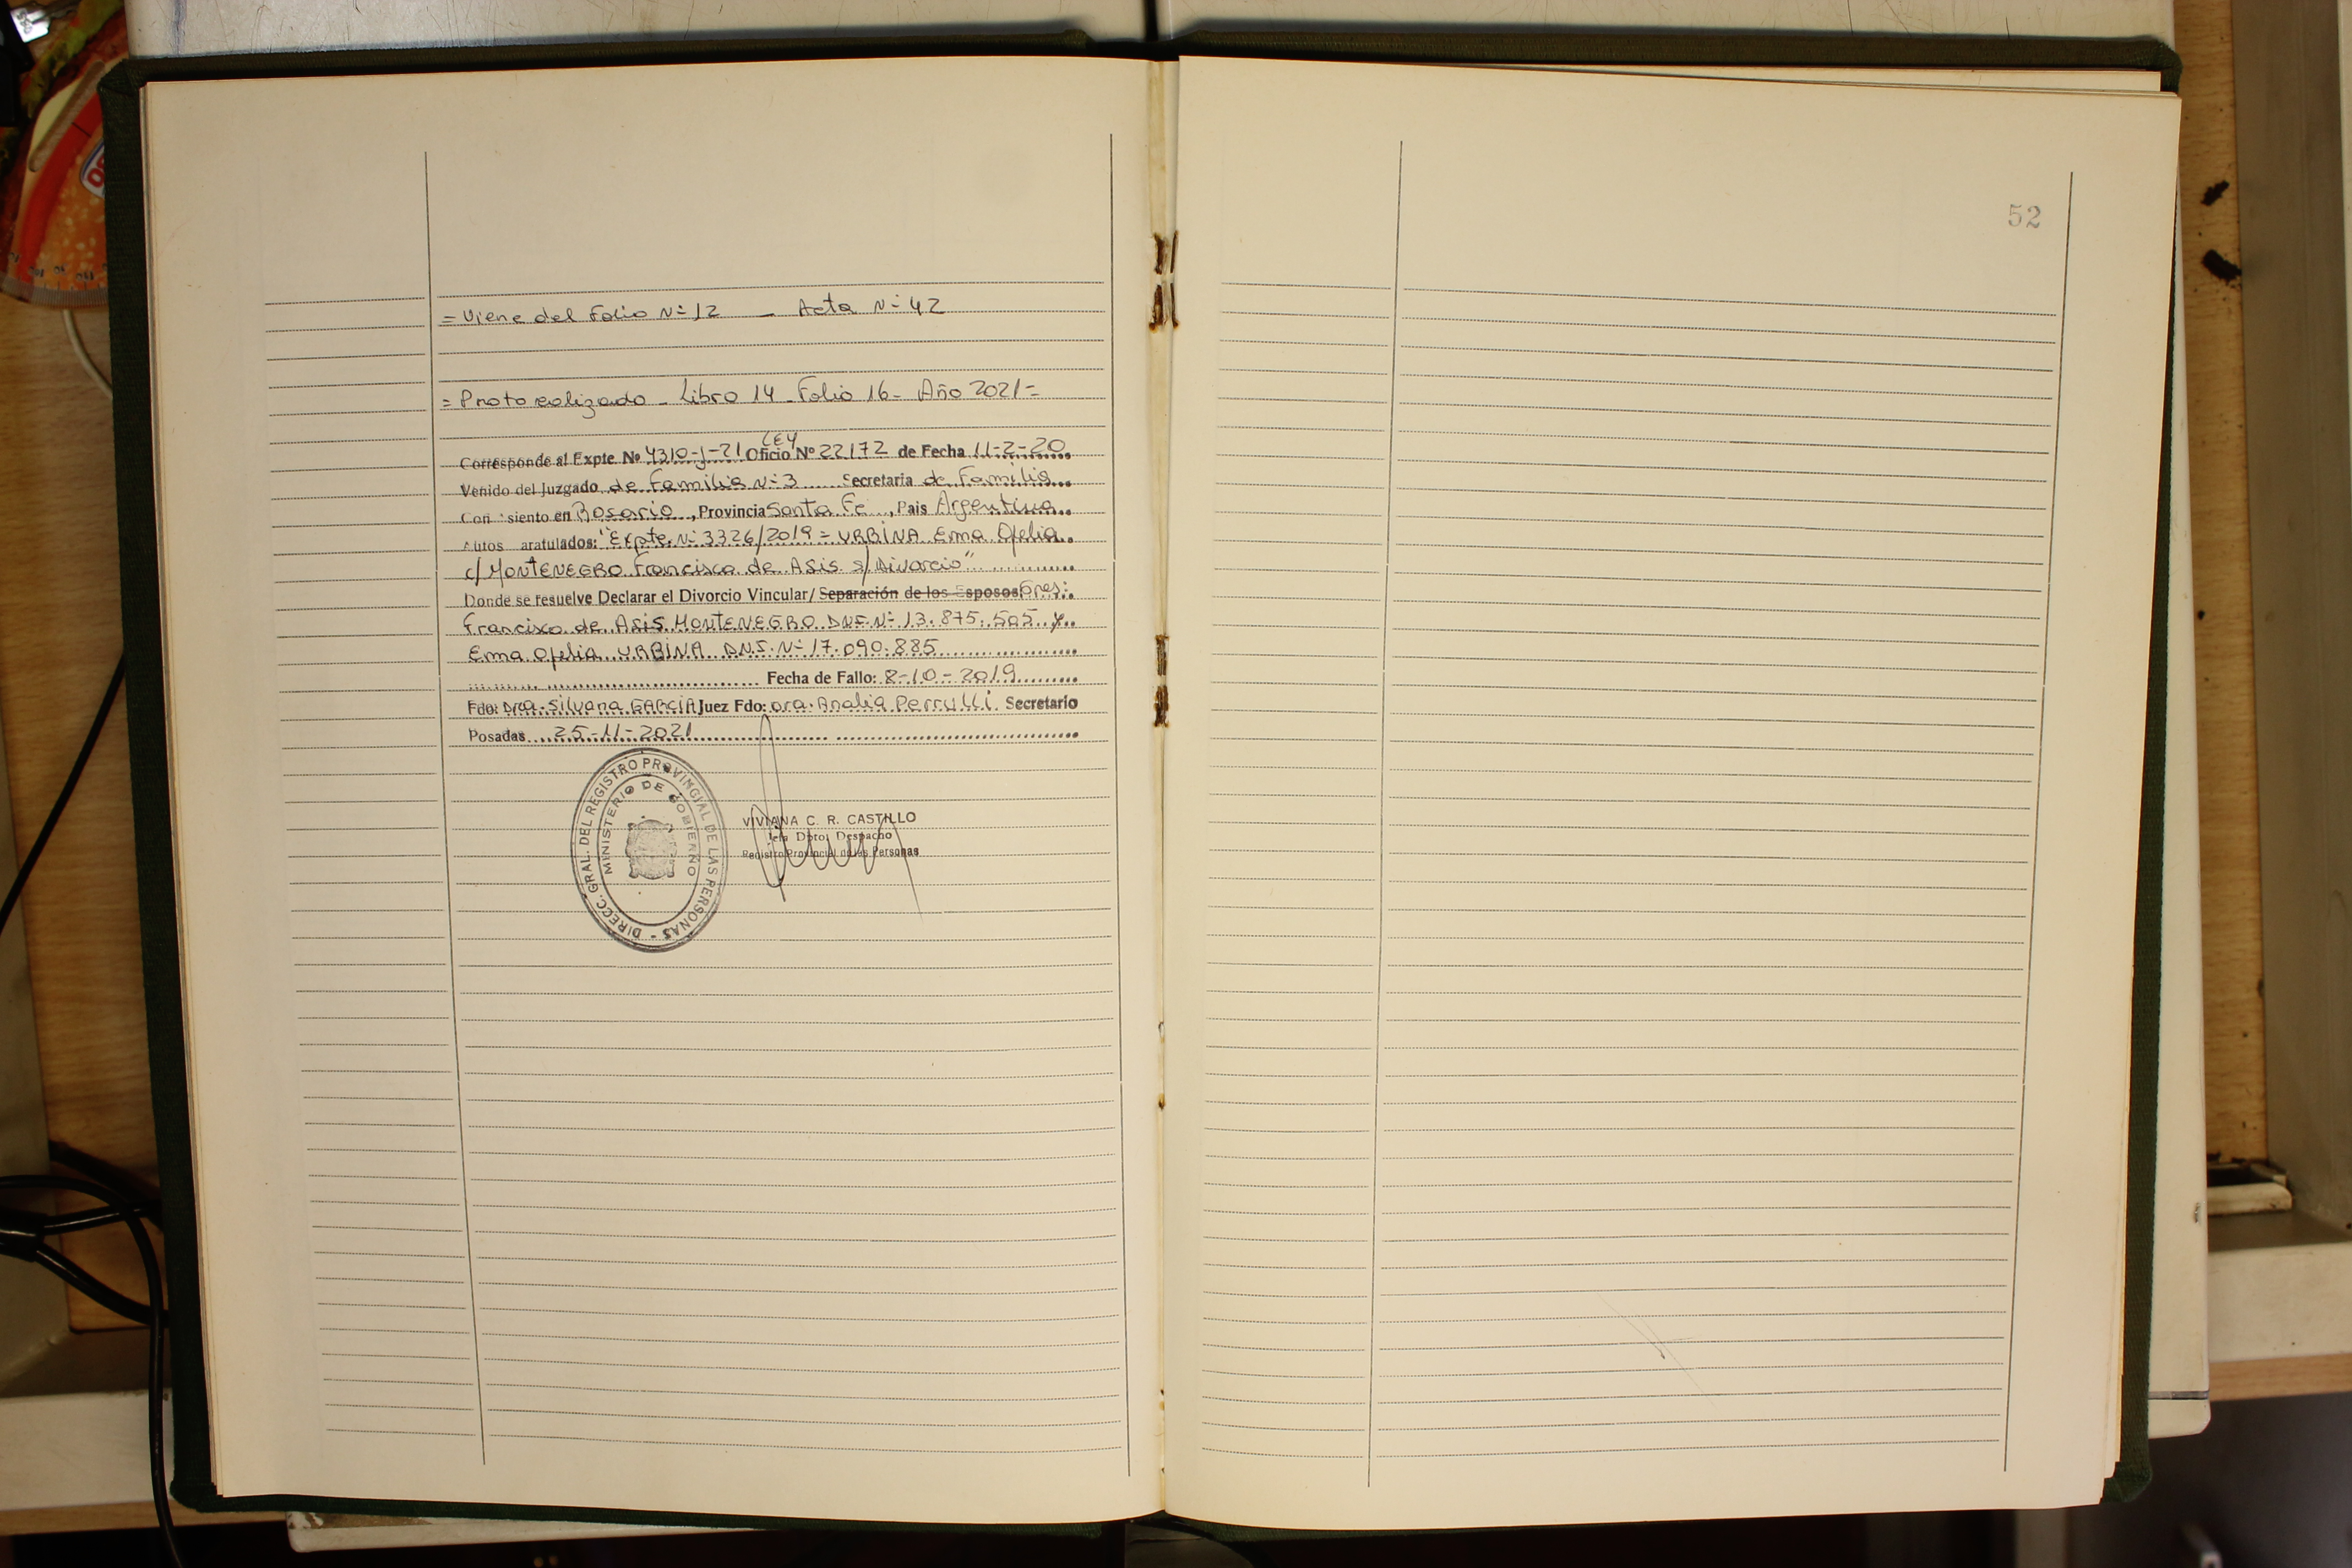 52
= Viene del Folio Nº 12 _ Acta Nº 42
= Protocolizado _ Libro 14 _ Folio 16 - Año 2021 =
LEY
Corresponde al Expte Nº 4310-J-21 Oficio Nº 22172 de Fecha 11-2-20
Venido del Juzgado de Familia Nº 3 Secretaria de Familia
Con asiento en Rosario, Provincia Santa Fe, Pais Argentina
Autos caratulados: "Expte. Nº 3326/2019 = URBINA Ema Ofelia
c/ MONTENEGRO Francisco de Asis s/ Divorcio"
Donde se resuelve Declarar el Divorcio Vincular/ Separación de los Esposos
Francisco de Asis MONTENEGRO D.N.I. Nº 13.875.505 y
Ema Ofelia URBINA D.N.I. Nº 17.090.885
Fecha de Fallo: 8-10-2019
Fdo: Dra. Silvana GARCIA Juez Fdo: Dra. Analia Perrulli Secretario
Posadas 25-11-2021
DIRECC. GRAL. DEL REGISTRO PROVINCIAL DE LAS PERSONAS -
MINISTERIO DE GOBIERNO
VIVIANA C. R. CASTILLO
Jefa Dpto. Despacho
Registro Provincial de las Personas